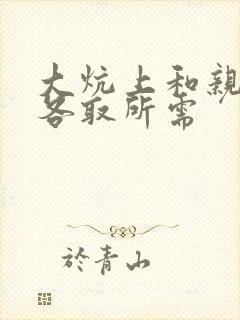 大炕上和親
各取所需
於青山